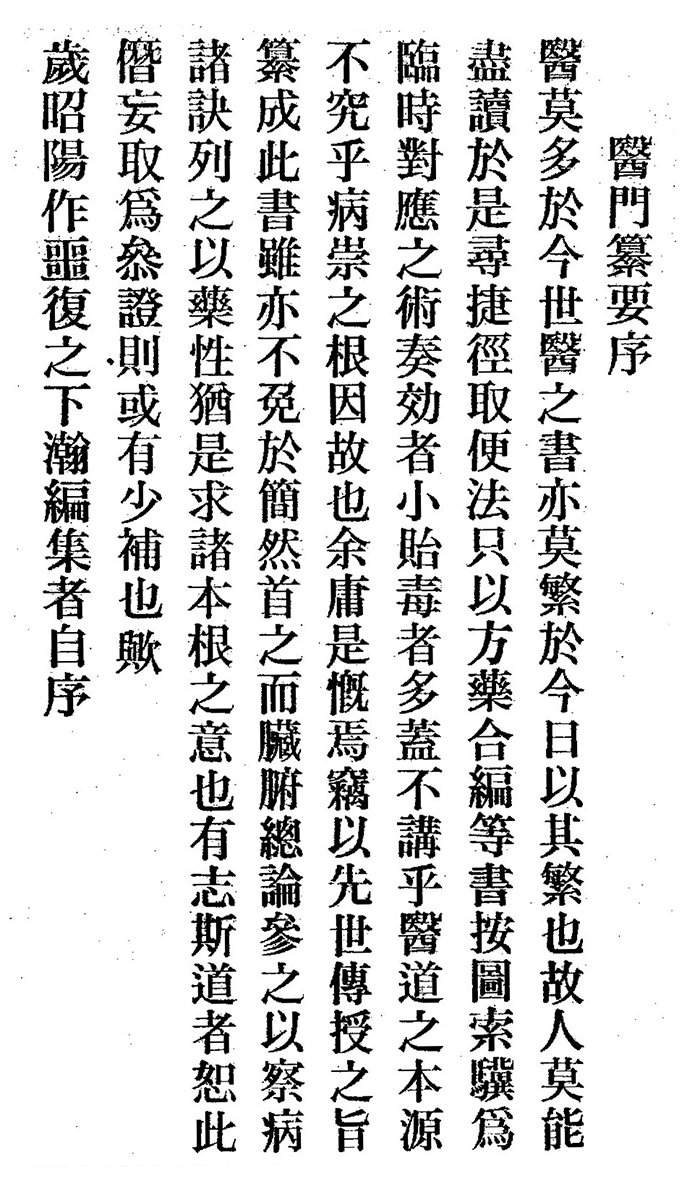 醫門纂要序
醫莫多於今世醫之書亦莫繁於今日以其繁也故人莫能
盡讀於是尋捷徑取便法只以方藥合編等書按圖索驥爲
臨時對應之術奏効者小貽毒者多蓋不講乎醫道之本源
不究乎病祟之根因故也余庸是慨焉竊以先世傳授之旨
纂成此書雖亦不免於簡然首之而臟腑總論參之以察病
諸訣列之以藥性猶是求諸本根之意也有志斯道者恕此
僭妄取爲叅證則或有少補也歟
歲昭陽作噩復之下瀚編集者自序